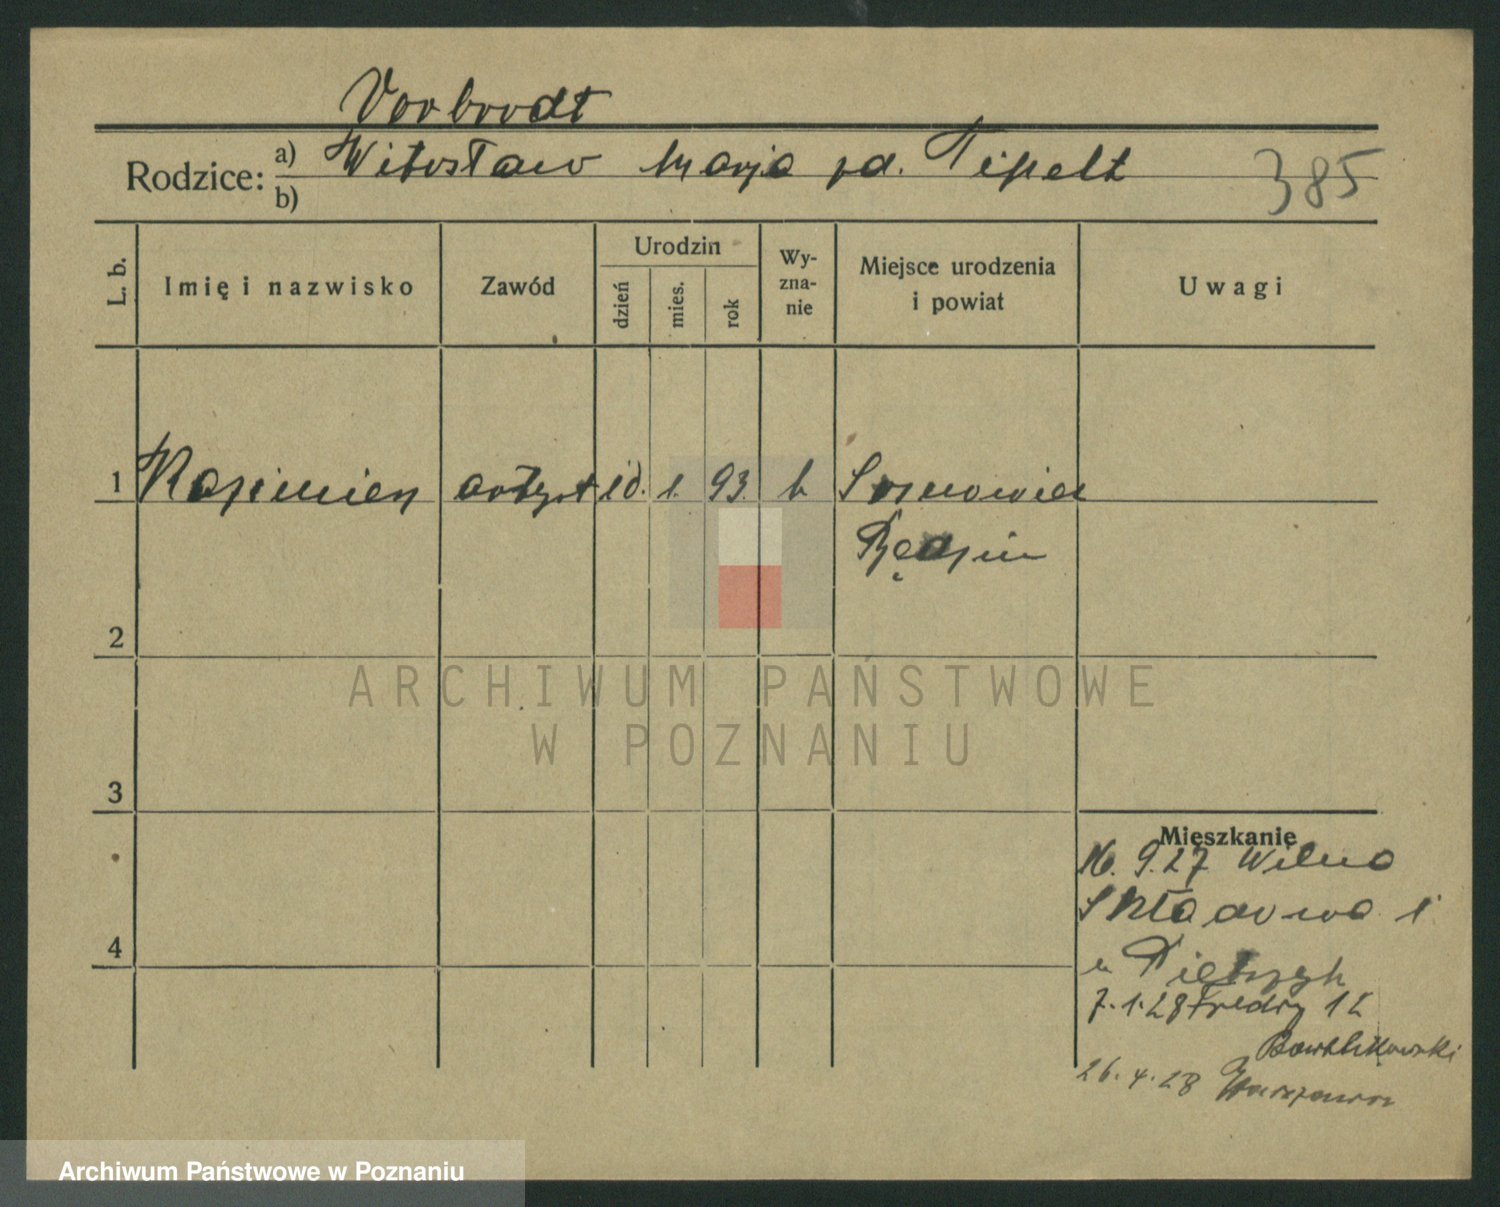 Vorbrodt
Rodzice: a) Witosław Marja zd. Tipelt
b)
385
L. b.
Imię i nazwisko
Zawód
Urodzin
dzień
mies.
rok
Wy-
zna-
nie
Miejsce urodzenia
i powiat
Uwagi
1 Kazimierz artyst 10. 1. 93. k Sosnowiec
Będzin
2
3
4
Mieszkanie
16. 9. 27 Wilno
Składowa 1
u
7. 1. 28 Fredry 12
26. 4. 28 Warszawa
ARCHIWUM PAŃSTWOWE
W POZNANIU
Archiwum Państwowe w Poznaniu